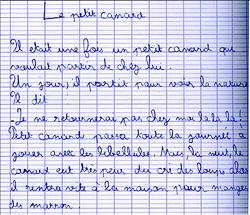 Le petit canard
Il etait une fois un petit canard qui
voulait partir de chez lui.
Un jour, il partit pour voir la nature
Il dit
- Je ne retournerai pas chez moi la la la!
Petit canard passa toute la journée a
jouer avec les libellules. Mais la nuit, le
canard eut très peur du cri des loups alors
il rentra vite a la maison pour manger
des marrons.